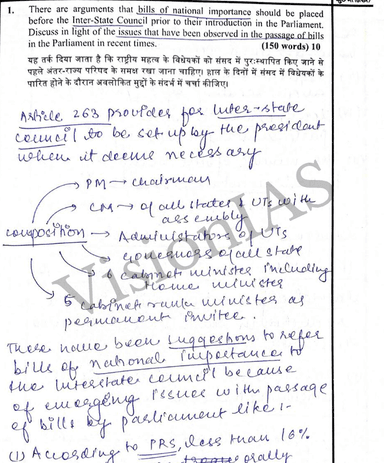 1. There are arguments that bills of national importance should be placed
before the Inter-State Council prior to their introduction in the Parliament.
Discuss in light of the issues that have been observed in the passage of bills
in the Parliament in recent times. (150 words) 10
यह तर्क दिया जाता है कि राष्ट्रीय महत्व के विधेयकों को संसद में पुरःस्थापित किए जाने से
पहले अंतर-राज्य परिषद के समक्ष रखा जाना चाहिए। हाल के दिनों में संसद में विधेयकों के
पारित होने के दौरान अवलोकित मुद्दों के संदर्भ में चर्चा कीजिए।
Article 263 provides for Inter-state
council to be set up by the president
when it deems necessary
PM → chairman
CM → of all states & UTs with
assembly
composition → Administrators of UTs
Governors of all state
6 cabinet minister including
Home minister
5 cabinet rank minister as
permanent invitee.
VisionIAS
There have been suggestions to refer
bills of national importance to
the Interstate council because
of emerging issues with passage
of bills by parliament like :-
(1) According to PRS, less than 10%
orally